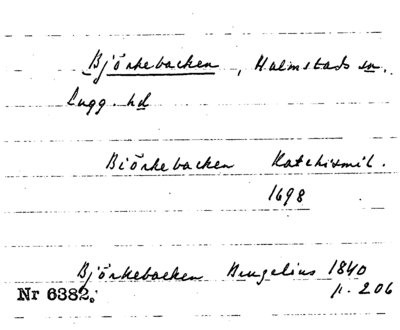 Björkebacken, Halmstads sn.
Lugg. hd
Biörkebacken Katekismil.
1698
Björkebacken Rugelius 1840
Nr 6382. p. 206